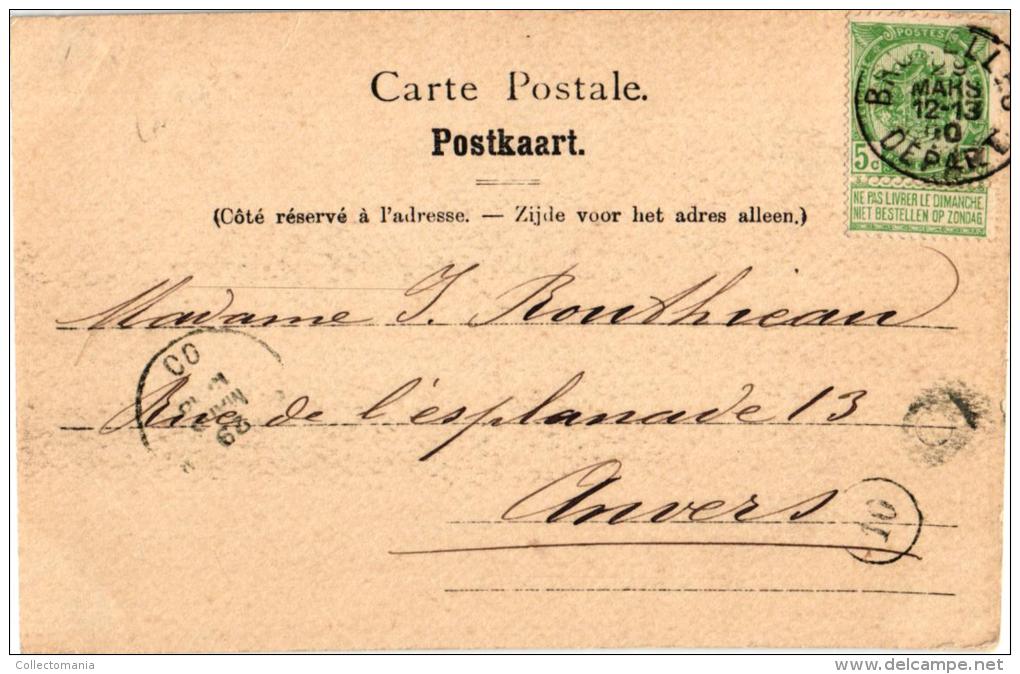 Carte Postale.
Postkaart.
(Côté réservé à l'adresse. — Zijde voor het adres alleen.)
POSTES
29
MARS
12-13
DÉPART
5c
NE PAS LIVRER LE DIMANCHE
NIET BESTELLEN OP ZONDAG
Madame J. Routhieau
Rue de l'esplanade 13
Anvers
10
29
Collectomania
www.delcampe.net